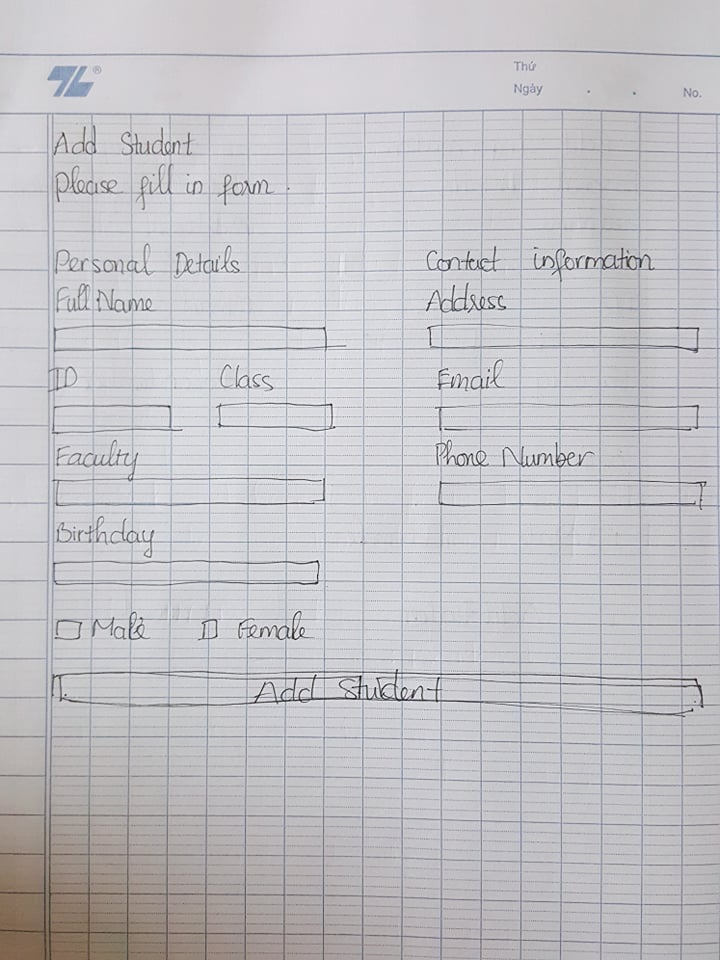 Thứ
Ngày . . No.
Add Student
Please fill in form.
Personal Details
Full Name
ID Class
Faculty
Birthday
Male Female
Contact information
Address
Email
Phone Number
Add Student